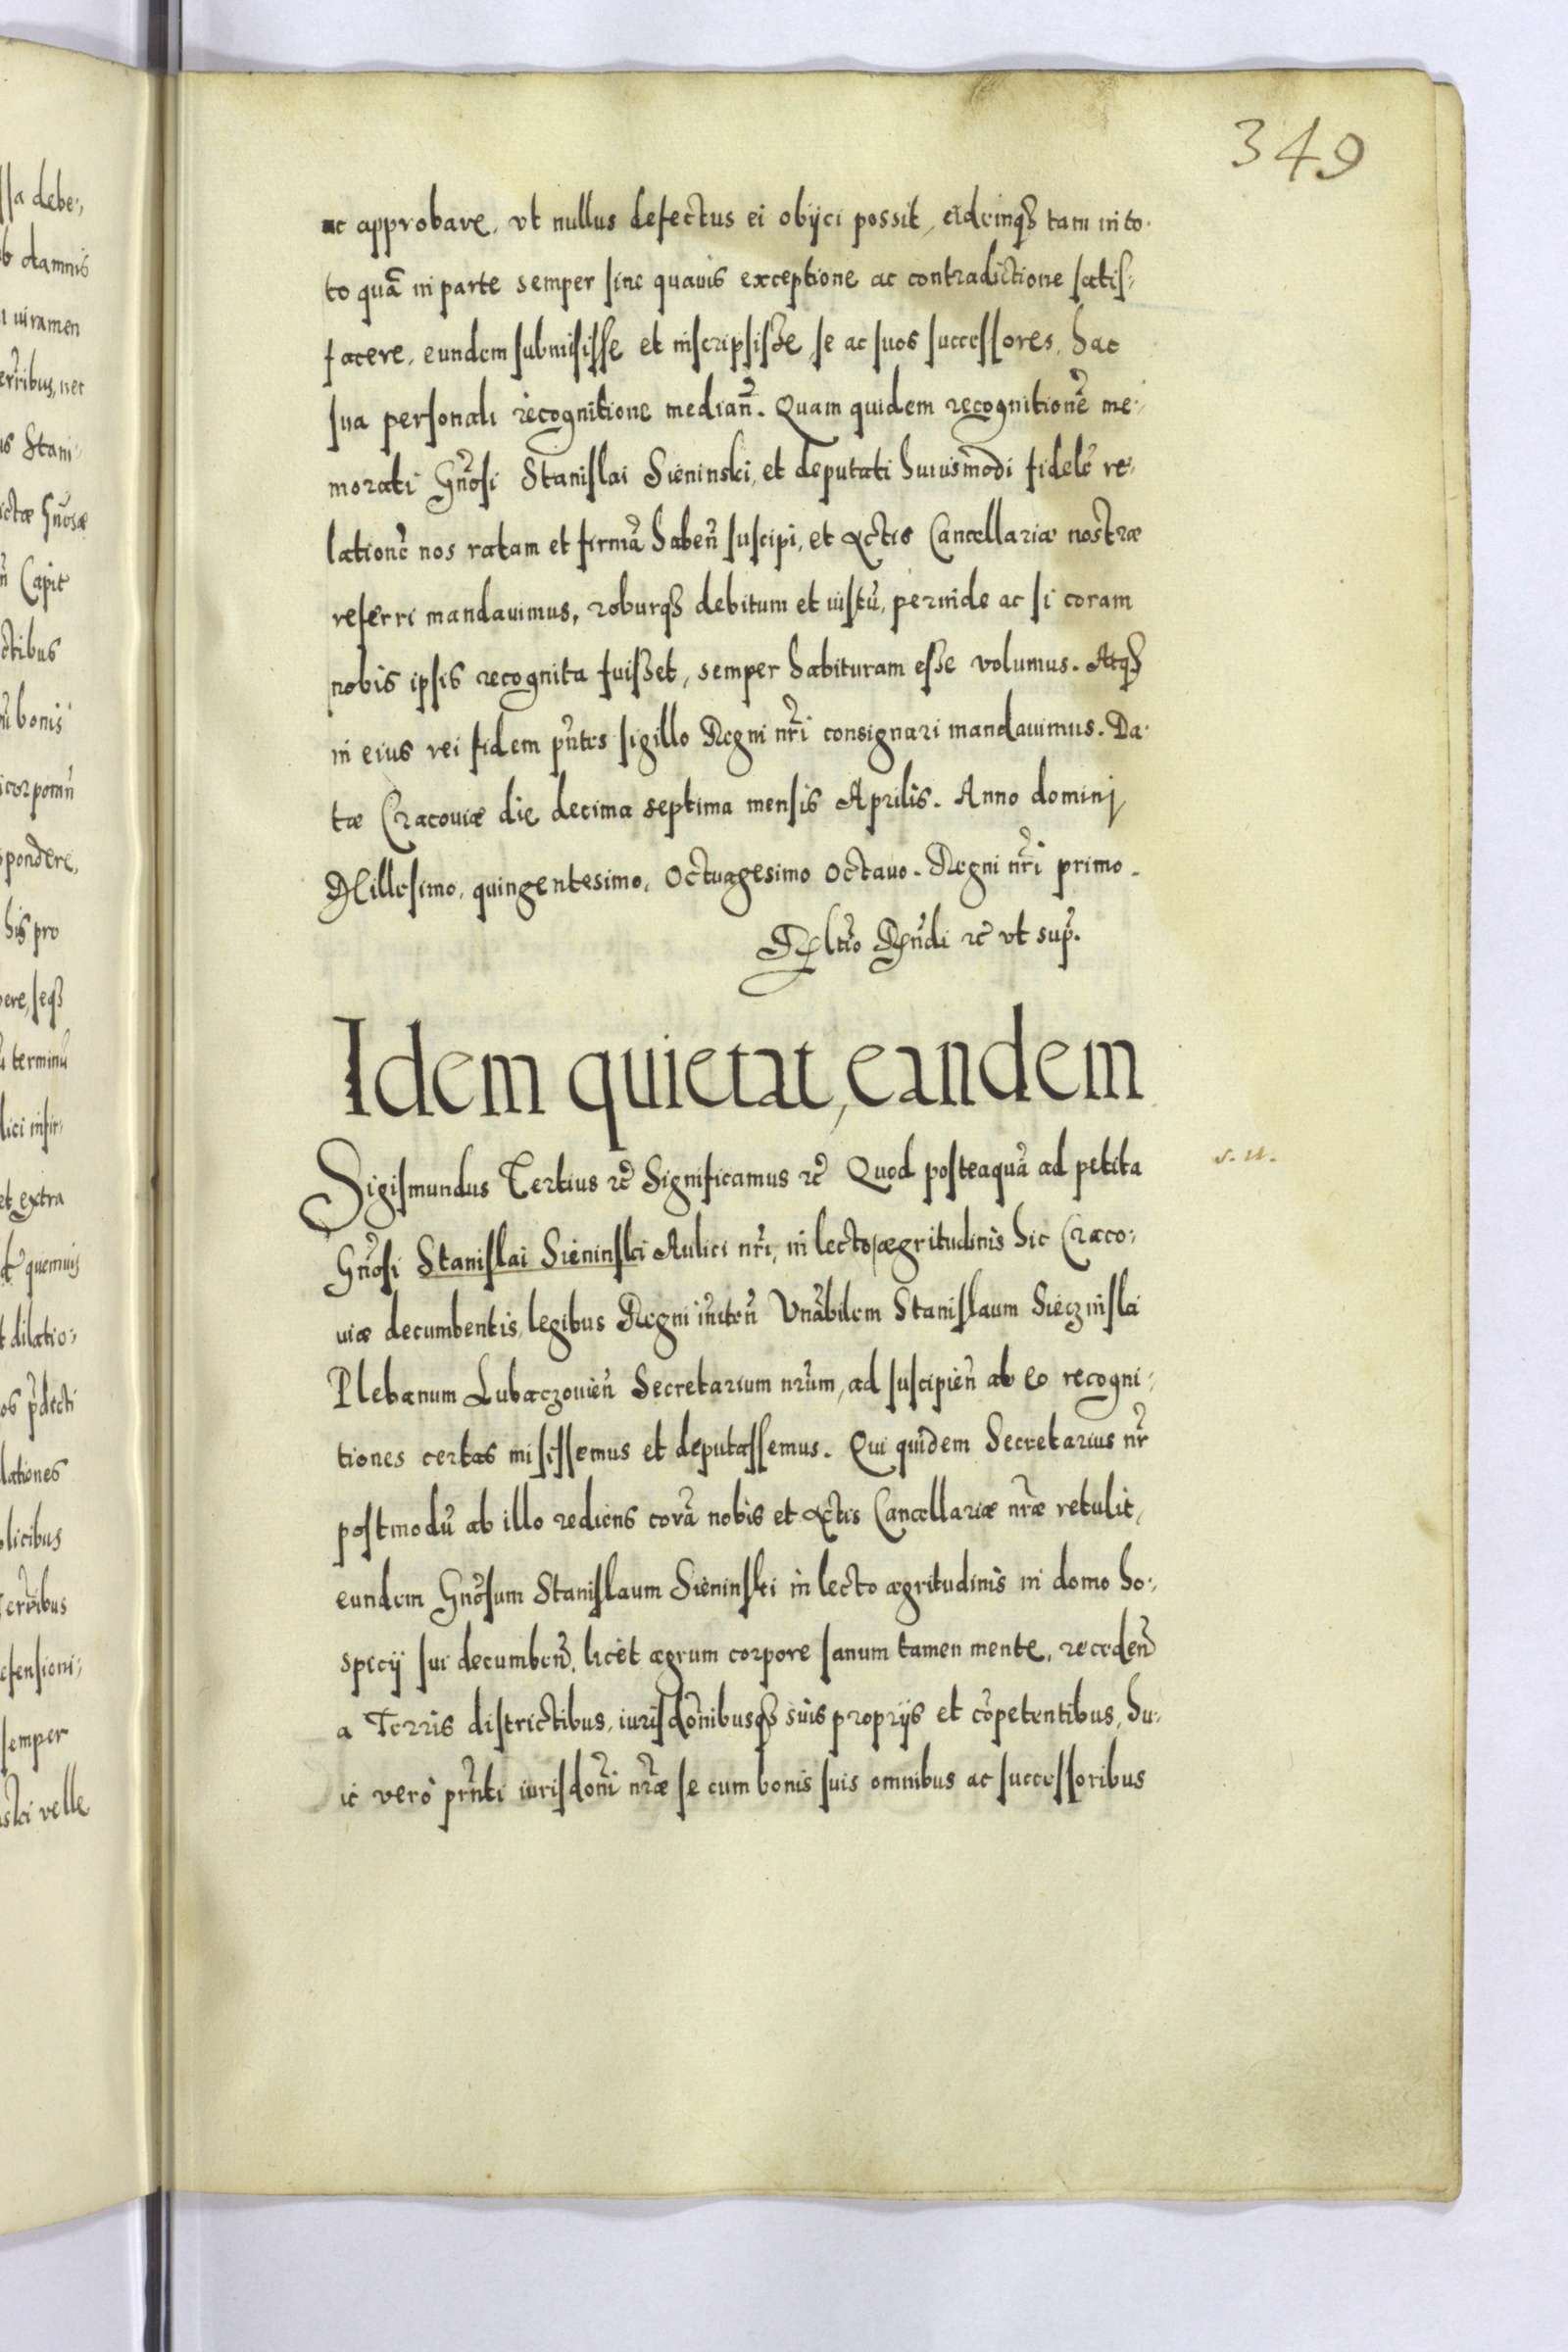 349
ac approbare, vt nullus defectus ei obijci possit, eidemqȝ tam in to-
to quã in parte semper sine quauis exceptione ac contradictione satis-
facere, eundem submisisse et inscripsisse, se ac suos successores, hac
sua personali recognitione mediañ. Quam quidem recognitionẽ me-
morati Gñosi Stanislai Sieninski, et deputati huiusmodi fidelẽ re-
lationẽ nos ratam et firmã habeñ suscipi, et Actis Cancellariæ nostræ
referri mandauimus, roburqȝ debitum et iustũ, perinde ac si coram
nobis ipsis recognita fuisset, semper habituram esse volumus. Atqȝ
in eius rei fidem pñtes sigillo Regni nr̃i consignari mandauimus. Da-
tæ Cracouiæ die decima septima mensis Aprilis. Anno dominj
Millesimo, quingentesimo, Octuagesimo Octauo. Regni nr̃i primo.
Rełtio Rñdi ꝛc̃ vt sup̃.
Idem quietat, eandem
Sigismundus Tertius ꝛc̃ Significamus ꝛc̃ Quod posteaquã ad petita
Gñosi Stanislai Sieninski Aulici nr̃i, in lecto ægritudinis hic Craco-
uiæ decumbentis, legibus Regni iñiteñ Vnãbilem Stanislaum Siecznislai
Plebanum Lubaczouieñ Secretarium nr̃um, ad suscipieñ ab eo recogni-
tiones certas misissemus et deputassemus. Qui quidem Secretarius nr̃
postmodũ ab illo rediens corã nobis et Actis Cancellariæ nr̃æ retulit,
eundem Gñosum Stanislaum Sieninski in lecto ægritudinis in domo ho-
spicij sui decumbeñ, licèt ægrum corpore sanum tamen mente, recedeñ
a Terris districtibus, iurisdõnibusqȝ suis proprijs et cõpetentibus, hu-
ic verò prñti iurisdõni nr̃æ se cum bonis suis omnibus ac successoribus